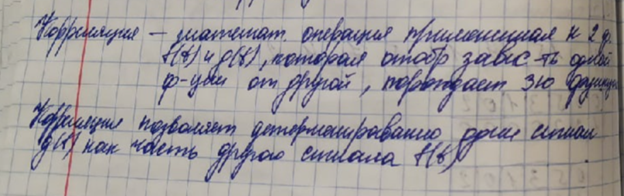 Корреляция – математ. операция применённая к 2 ф.
f(t) и g(t), которая отобр завис-ть одной
ф-ции от другой, порождает 3ю функцию
Корреляция позволяет детермонированно один сигнал
g(t) как часть другого сигнала f(t)